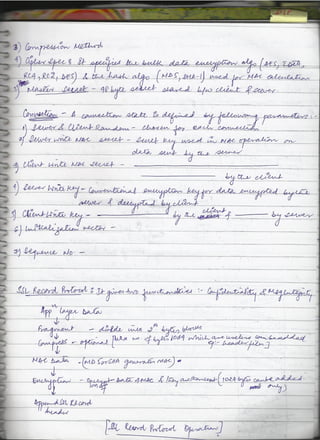 3) Compression Method
4) Cipher Spec : It specifies the bulk data encryption algo (AES, IDEA,
RC4, RC2, DES) & the hash algo (MD5, SHA-1) used for MAC calculation
5) Master Secret - 48 byte secret shared b/w client & server
Connection - A connection state is defined by following parameters :-
1) Server & Client Random - chosen for each connection
2) Server write MAC secret - Secret key used in MAC operation on
data sent by the server
3) Client write MAC Secret -
by the client
4) Server Write Key - Conventional encryption key for data encrypted by the
server & decrypted by client
5) Client Write Key - by the client & by server
6) Initialization vector -
7) Sequence No -
SSL Record Protocol : It gives two functionalities :- Confidentiality & Msg Integrity
App layer Data
Fragment - divide into 2^14 bytes blocks
Compress - optional
MAC Data -
Encryption - Encrypt data & MAC
Append SSL Record
header
SSL Record Protocol Operation